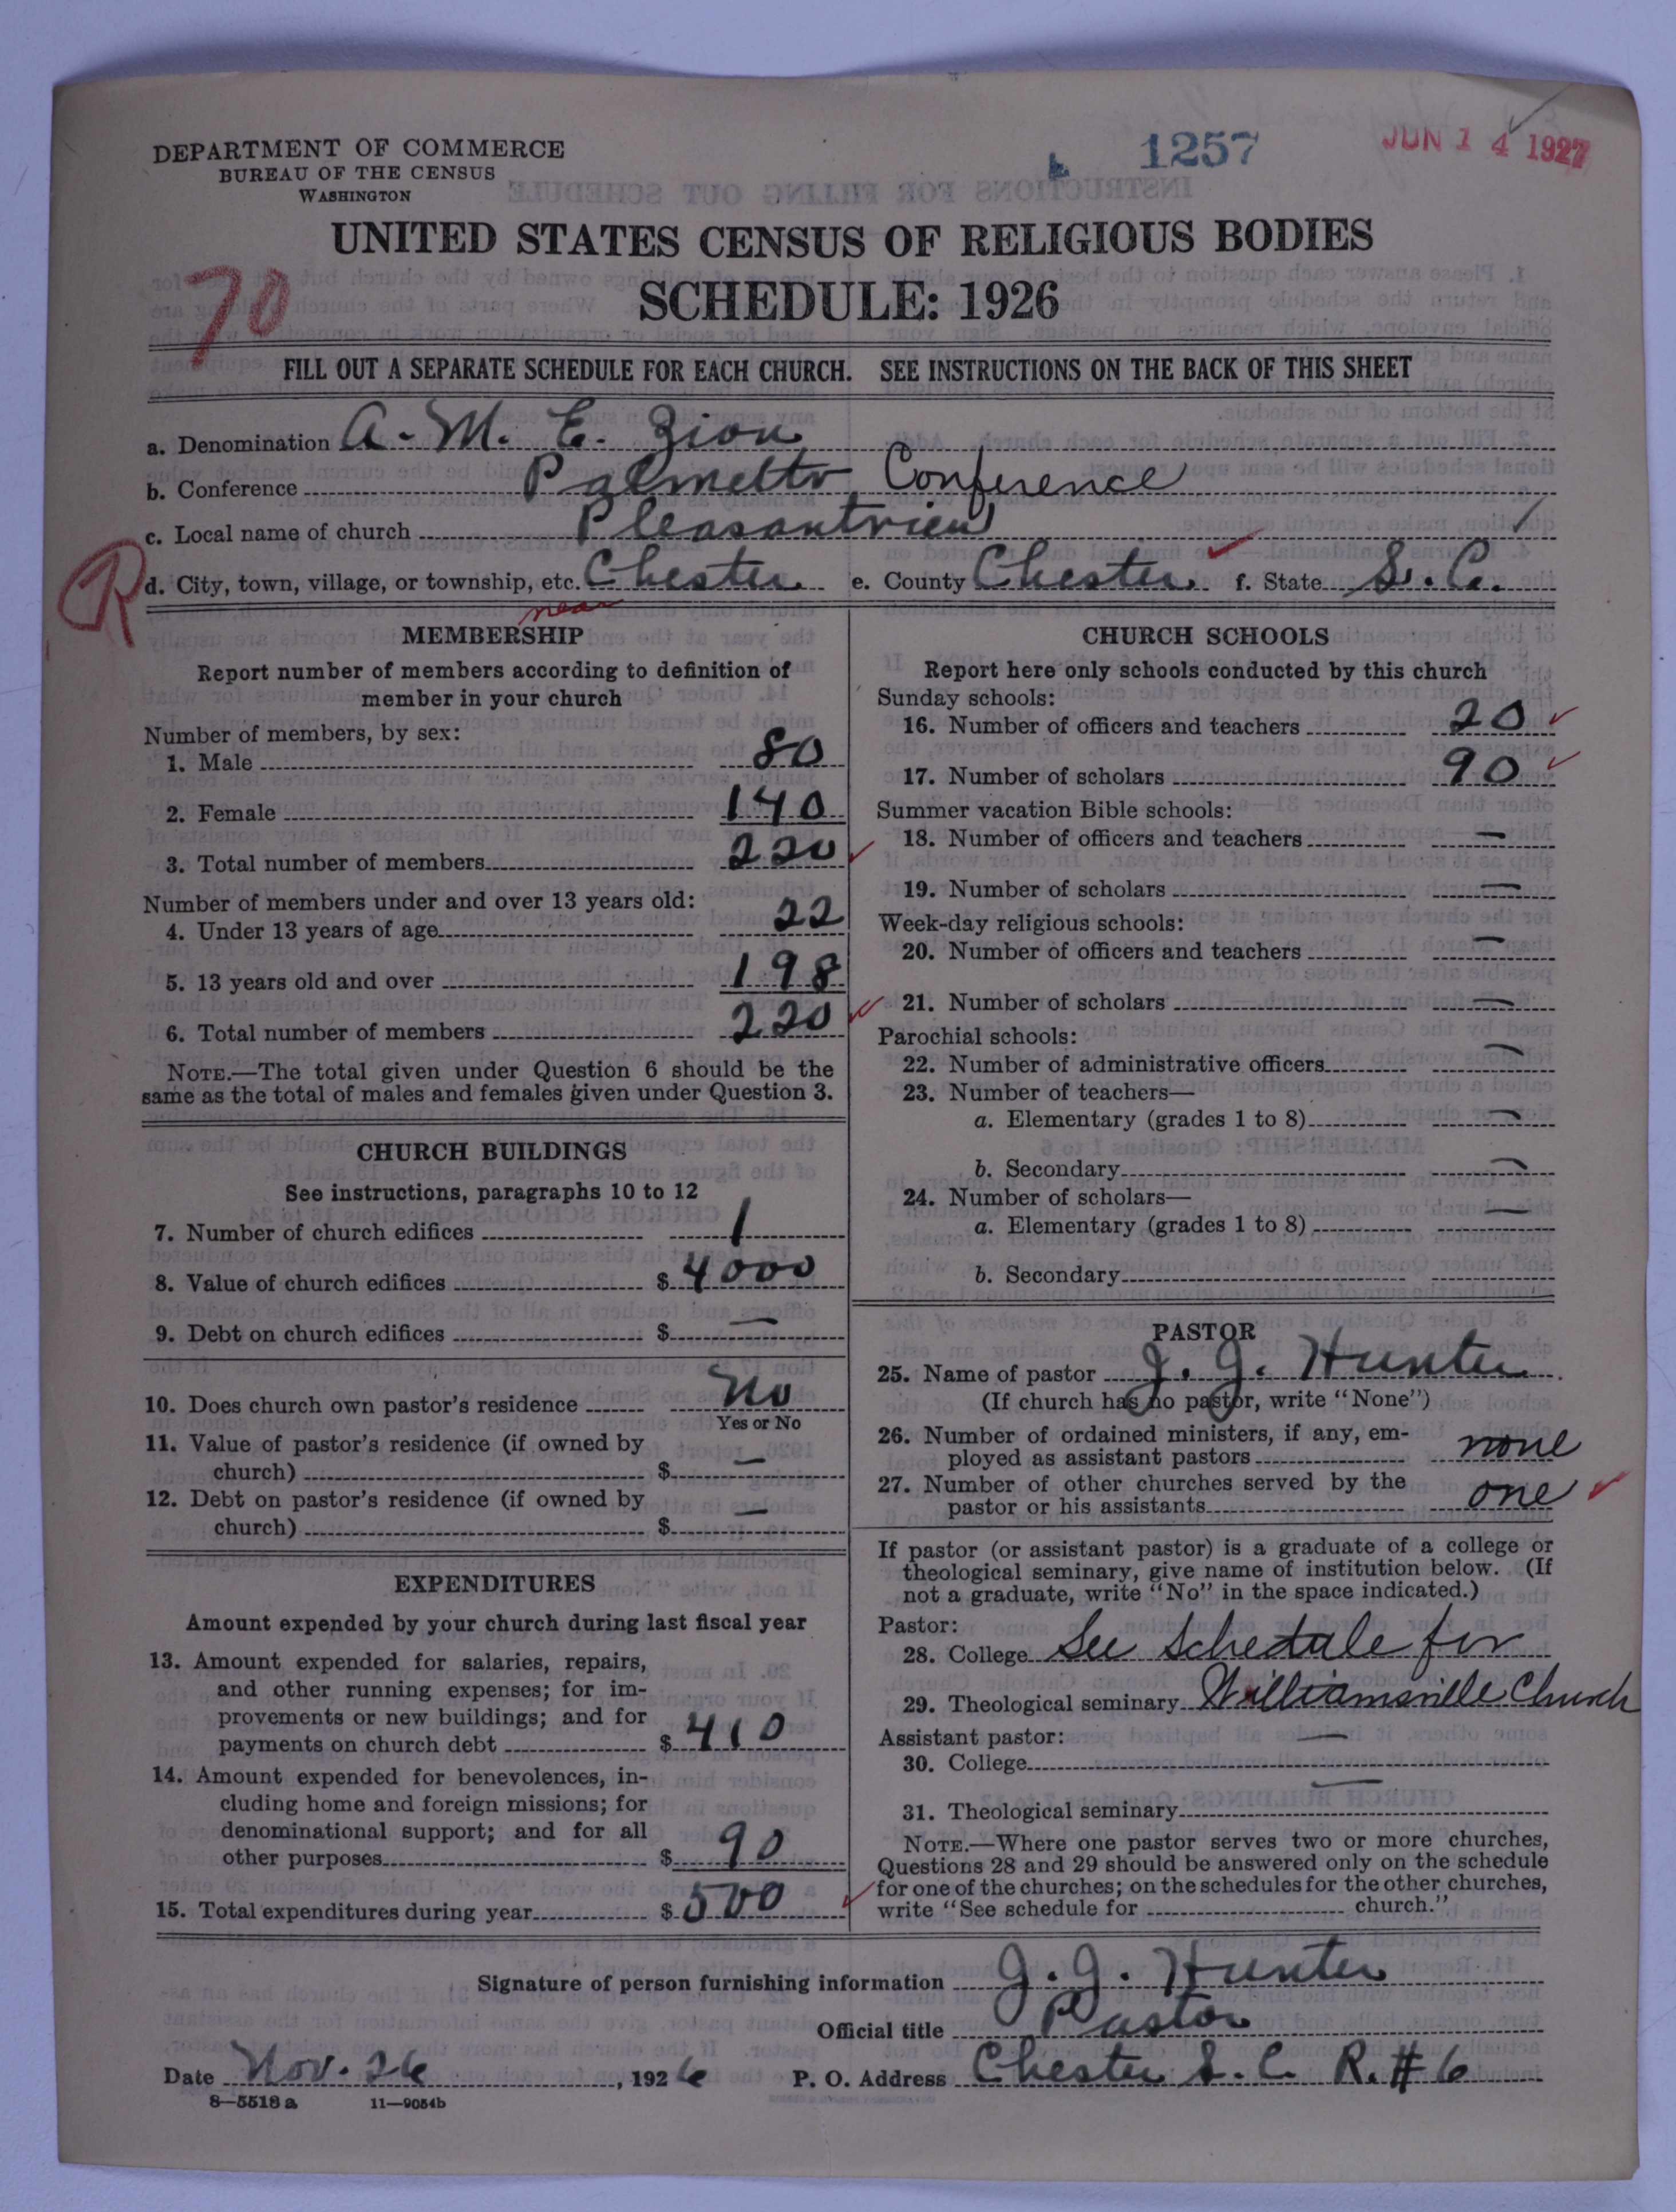 DEPARTMENT OF COMMERCE
BUREAU OF THE CENSUS
WASHINGTON
1257
JUN 14 1927
UNITED STATES CENSUS OF RELIGIOUS BODIES
SCHEDULE: 1926
70
FILL OUT A SEPARATE SCHEDULE FOR EACH CHURCH. SEE INSTRUCTIONS ON THE BACK OF THIS SHEET
a. Denomination A. M. E. Zion
b. Conference Palmetto Conference
c. Local name of church Pleasantview
R
d. City, town, village, or township, etc. Chester e. County Chester f. State S. C.
near
MEMBERSHIP
Report number of members according to definition of
member in your church
Number of members, by sex:
1. Male 80
2. Female 140
3. Total number of members 220
Number of members under and over 13 years old:
4. Under 13 years of age 22
5. 13 years old and over 198
6. Total number of members 220
NOTE.—The total given under Question 6 should be the
same as the total of males and females given under Question 3.
CHURCH BUILDINGS
See instructions, paragraphs 10 to 12
7. Number of church edifices 1
8. Value of church edifices $ 4000
9. Debt on church edifices $ —
10. Does church own pastor's residence No
Yes or No
11. Value of pastor's residence (if owned by
church) $ —
12. Debt on pastor's residence (if owned by
church) $ —
EXPENDITURES
Amount expended by your church during last fiscal year
13. Amount expended for salaries, repairs,
and other running expenses; for im-
provements or new buildings; and for
payments on church debt $ 410
14. Amount expended for benevolences, in-
cluding home and foreign missions; for
denominational support; and for all
other purposes $ 90
15. Total expenditures during year $ 500
CHURCH SCHOOLS
Report here only schools conducted by this church
Sunday schools:
16. Number of officers and teachers 20
17. Number of scholars 90
Summer vacation Bible schools:
18. Number of officers and teachers —
19. Number of scholars —
Week-day religious schools:
20. Number of officers and teachers —
21. Number of scholars —
Parochial schools:
22. Number of administrative officers —
23. Number of teachers—
a. Elementary (grades 1 to 8) —
b. Secondary —
24. Number of scholars—
a. Elementary (grades 1 to 8) —
b. Secondary
PASTOR
25. Name of pastor J. J. Hunter
(If church has no pastor, write "None")
26. Number of ordained ministers, if any, em-
ployed as assistant pastors none
27. Number of other churches served by the
pastor or his assistants one
If pastor (or assistant pastor) is a graduate of a college or
theological seminary, give name of institution below. (If
not a graduate, write "No" in the space indicated.)
Pastor:
28. College See Schedule for
29. Theological seminary Williamsville Church
Assistant pastor: —
30. College
31. Theological seminary —
NOTE.—Where one pastor serves two or more churches,
Questions 28 and 29 should be answered only on the schedule
for one of the churches; on the schedules for the other churches,
write "See schedule for church."
Signature of person furnishing information J. J. Hunter
Official title Pastor
Date Nov. 26, 1926 P. O. Address Chester S. C. R. # 6
8—5518 a 11—9054b